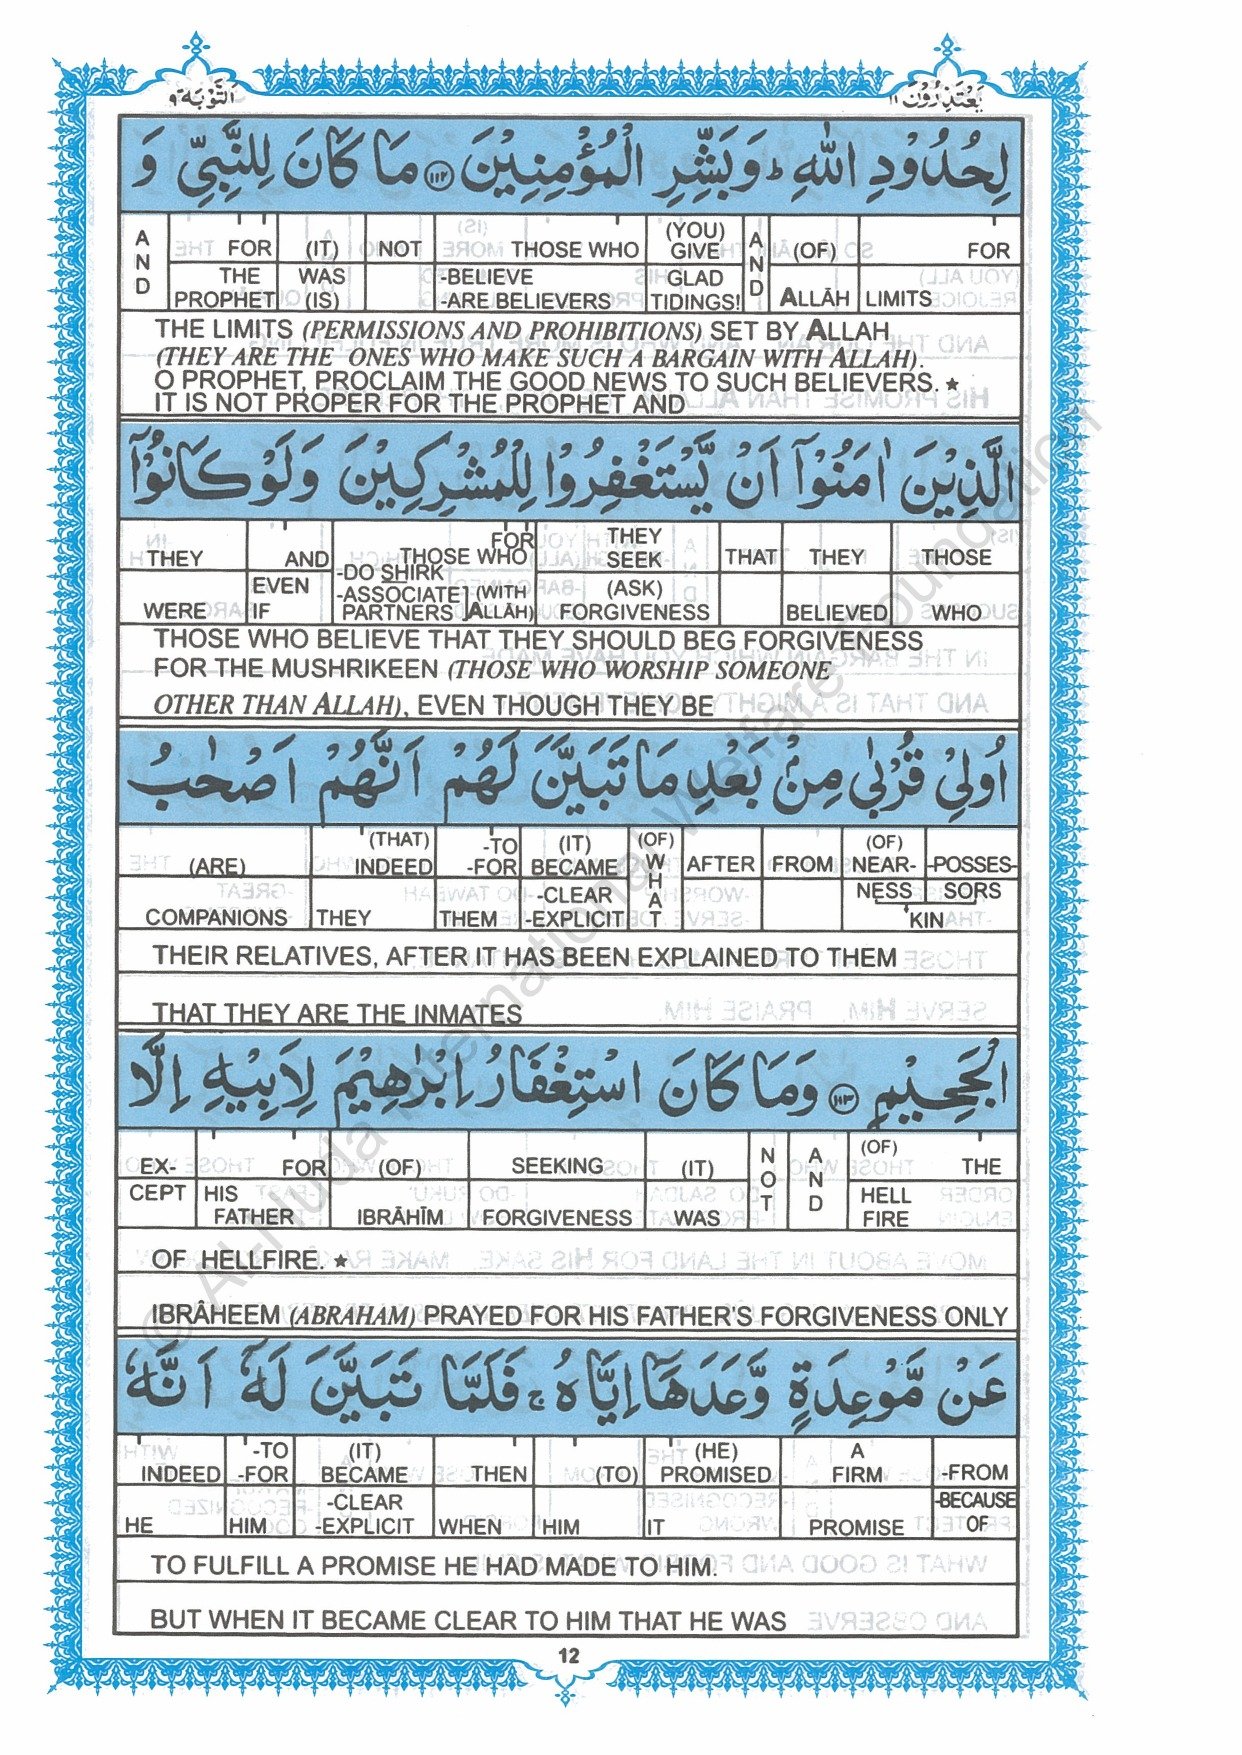 التوبة ٩
يعتذرون ١١
لِحُدُوْدِ اللهِ ؕ وَبَشِّرِ الْمُؤْمِنِيْنَ ۝١١٢ مَا كَانَ لِلنَّبِيِّ وَ
AND | FOR THE PROPHET | (IT) WAS (IS) | NOT | THOSE WHO -BELIEVE -ARE BELIEVERS | (YOU) GIVE GLAD TIDINGS! | AND | (OF) ALLĀH | FOR LIMITS
THE LIMITS (PERMISSIONS AND PROHIBITIONS) SET BY ALLAH
(THEY ARE THE ONES WHO MAKE SUCH A BARGAIN WITH ALLAH).
O PROPHET, PROCLAIM THE GOOD NEWS TO SUCH BELIEVERS. ★
IT IS NOT PROPER FOR THE PROPHET AND
الَّذِيْنَ اٰمَنُوْٓا اَنْ يَّسْتَغْفِرُوْا لِلْمُشْرِكِيْنَ وَلَوْ كَانُوْٓا
THEY WERE | AND EVEN IF | FOR THOSE WHO -DO SHIRK -ASSOCIATE PARTNERS (WITH ALLĀH) | THEY SEEK (ASK) FORGIVENESS | THAT | THEY BELIEVED | THOSE WHO
THOSE WHO BELIEVE THAT THEY SHOULD BEG FORGIVENESS
FOR THE MUSHRIKEEN (THOSE WHO WORSHIP SOMEONE
OTHER THAN ALLAH), EVEN THOUGH THEY BE
اُولِيْ قُرْبٰى مِنْۢ بَعْدِ مَا تَبَيَّنَ لَهُمْ اَنَّهُمْ اَصْحٰبُ
(ARE) COMPANIONS | (THAT) INDEED THEY | -TO -FOR THEM | (IT) BECAME -CLEAR -EXPLICIT | (OF) WHAT | AFTER | FROM | (OF) NEAR-NESS | -POSSES-SORS
KIN
THEIR RELATIVES, AFTER IT HAS BEEN EXPLAINED TO THEM
THAT THEY ARE THE INMATES
الْجَحِيْمِ ۝١١٣ وَمَا كَانَ اسْتِغْفَارُ اِبْرٰهِيْمَ لِاَبِيْهِ اِلَّا
EX-CEPT | FOR HIS FATHER | (OF) IBRĀHĪM | SEEKING FORGIVENESS | (IT) WAS | NOT | AND | (OF) THE HELL FIRE
OF HELLFIRE. ★
IBRÂHEEM (ABRAHAM) PRAYED FOR HIS FATHER'S FORGIVENESS ONLY
عَنْ مَّوْعِدَةٍ وَّعَدَهَآ اِيَّاهُ ۚ فَلَمَّا تَبَيَّنَ لَهٗٓ اَنَّهٗ
INDEED HE | -TO -FOR HIM | (IT) BECAME -CLEAR -EXPLICIT | THEN WHEN | (TO) HIM | (HE) PROMISED IT | A FIRM PROMISE | -FROM -BECAUSE OF
TO FULFILL A PROMISE HE HAD MADE TO HIM.
BUT WHEN IT BECAME CLEAR TO HIM THAT HE WAS
12
© Al-Huda International Welfare Foundation